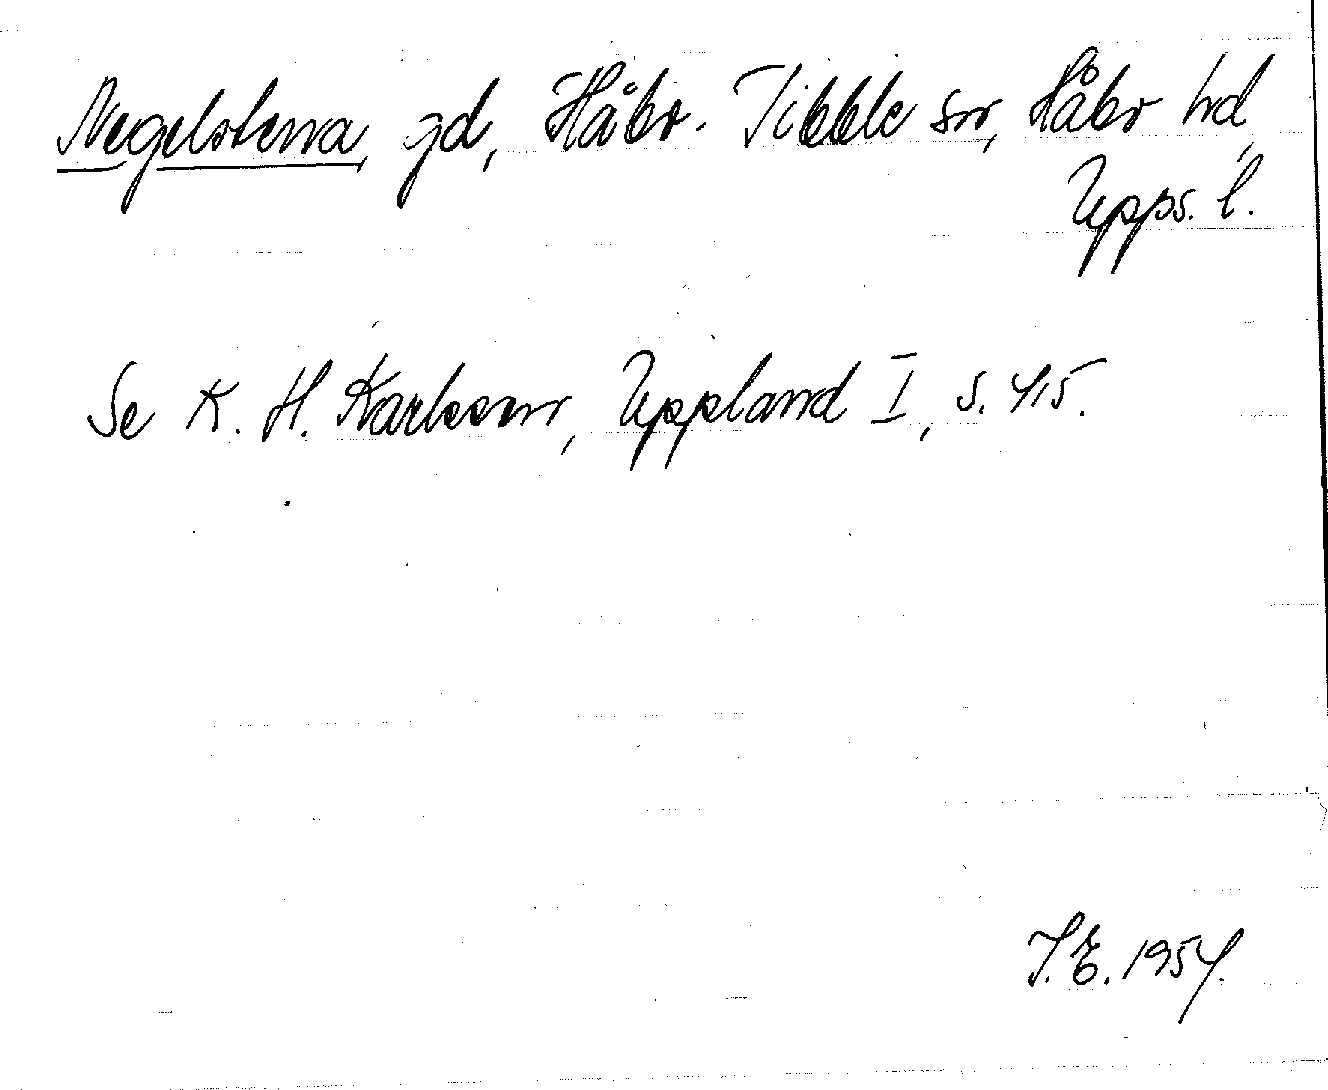 Negelstena, gd, Håbo-Tibble sn, Håbo hd,
Upps. l.
Se K. H. Karlsson, Uppland I, s. 415.
T. E. 1954.